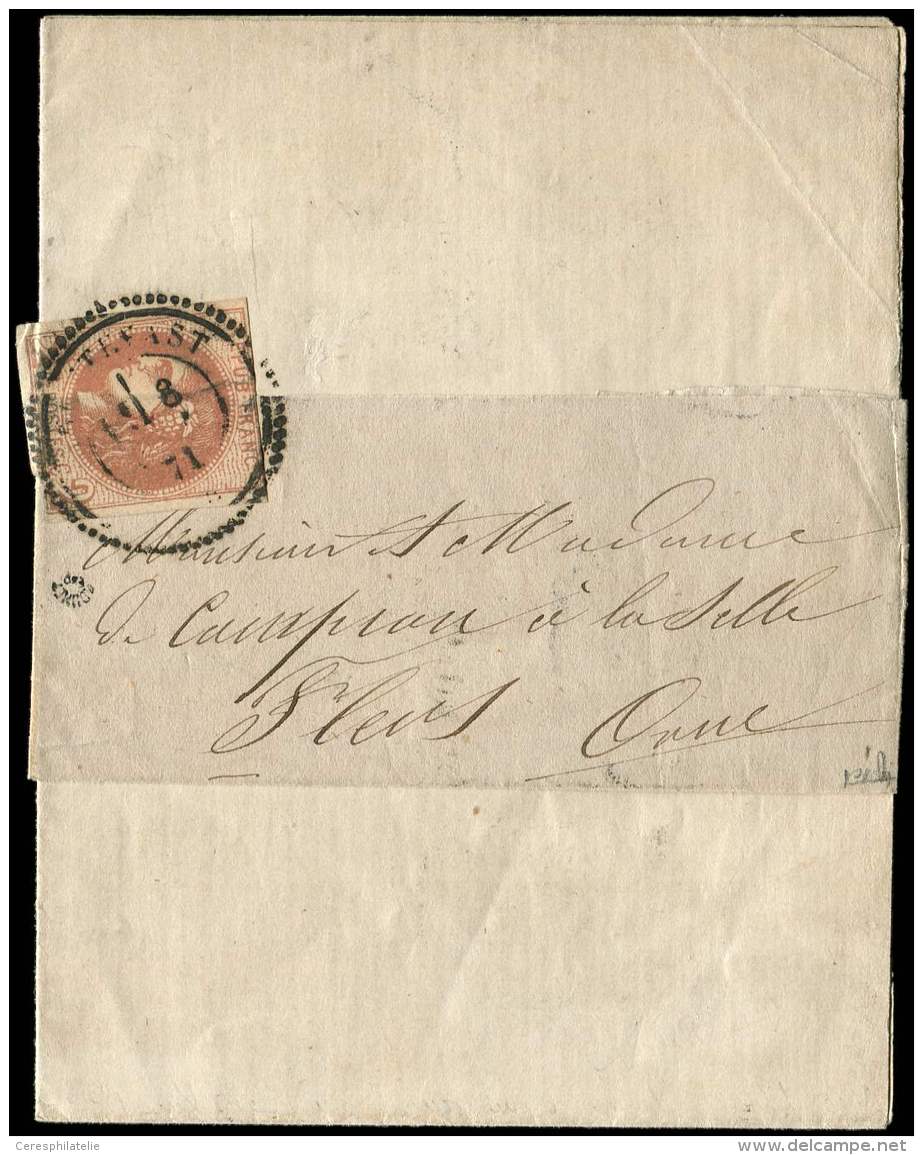 TEVAST
8
71
Monsieur et Madame
de Campion à la Selle
Flers Orne
Ceresphilatelie
delcampe.net